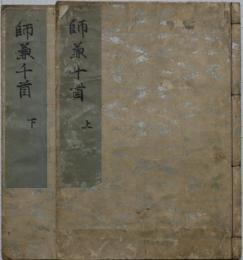 師兼千首
上
師兼千首
下